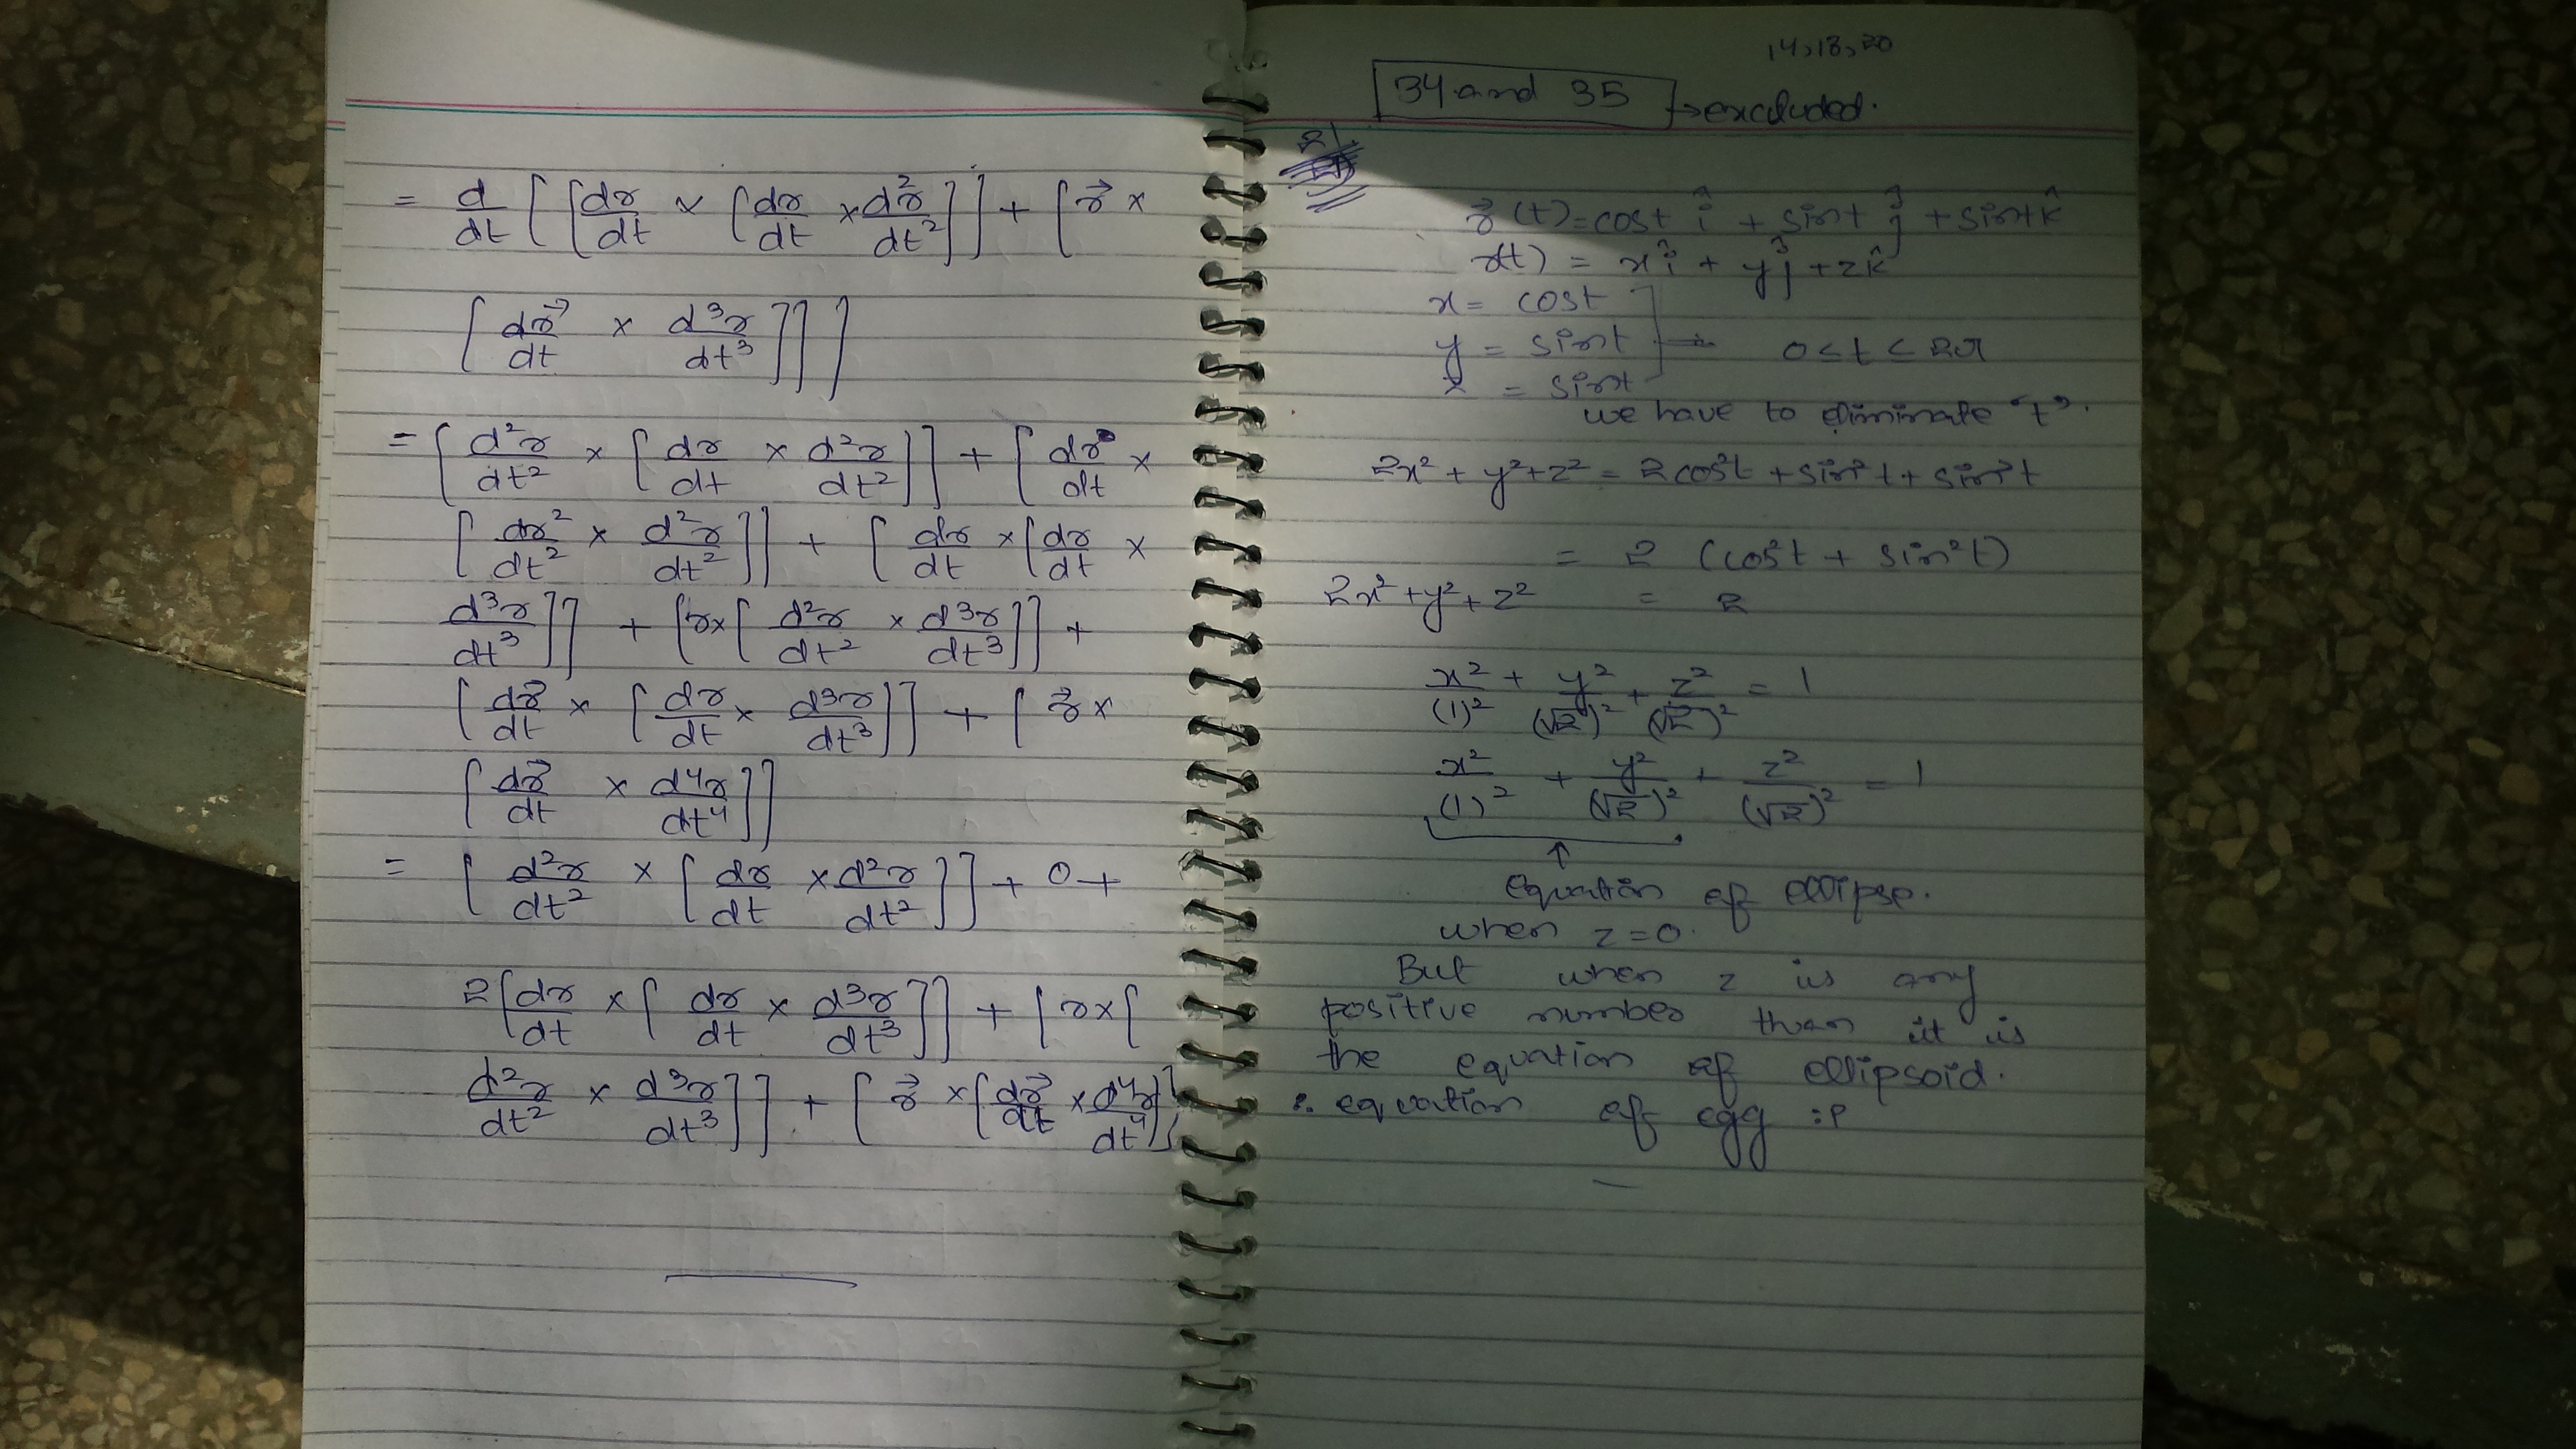 = d/dt [ [dr/dt × [dr/dt × d²r/dt²]] + [r⃗ ×
[dr⃗/dt × d³r/dt³]] ]
= [d²r/dt² × [dr/dt × d²r/dt²]] + [dr/dt ×
[dr²/dt² × d²r/dt²]] + [dr/dt × [dr/dt ×
d³r/dt³]] + [r × [d²r/dt² × d³r/dt³]] +
[dr⃗/dt × [dr/dt × d³r/dt³]] + [r⃗ ×
[dr⃗/dt × d⁴r/dt⁴]]
= [d²r/dt² × [dr/dt × d²r/dt²]] + 0 +
2[dr/dt × [dr/dt × d³r/dt³]] + [r × [
d²r/dt² × d³r/dt³]] + [r⃗ × [dr⃗/dt × d⁴r/dt⁴]]
14, 18, 20
34 and 35 → excluded.
21
r⃗(t) = cost î + sint ĵ + sint k̂
r(t) = xî + yĵ + zk̂
x = cost
y = sint → 0 ≤ t ≤ 2π
z = sint
we have to eliminate "t".
2x² + y² + z² = 2cos²t + sin²t + sin²t
= 2 (cos²t + sin²t)
2x² + y² + z² = 2
x²/(1)² + y²/(√2)² + z²/(√2)² = 1
x²/(1)² + y²/(√2)² + z²/(√2)² = 1
↑
equation of ellipse.
when z = 0.
But when z is any
positive number then it is
the equation of ellipsoid.
∴ equation of egg :P